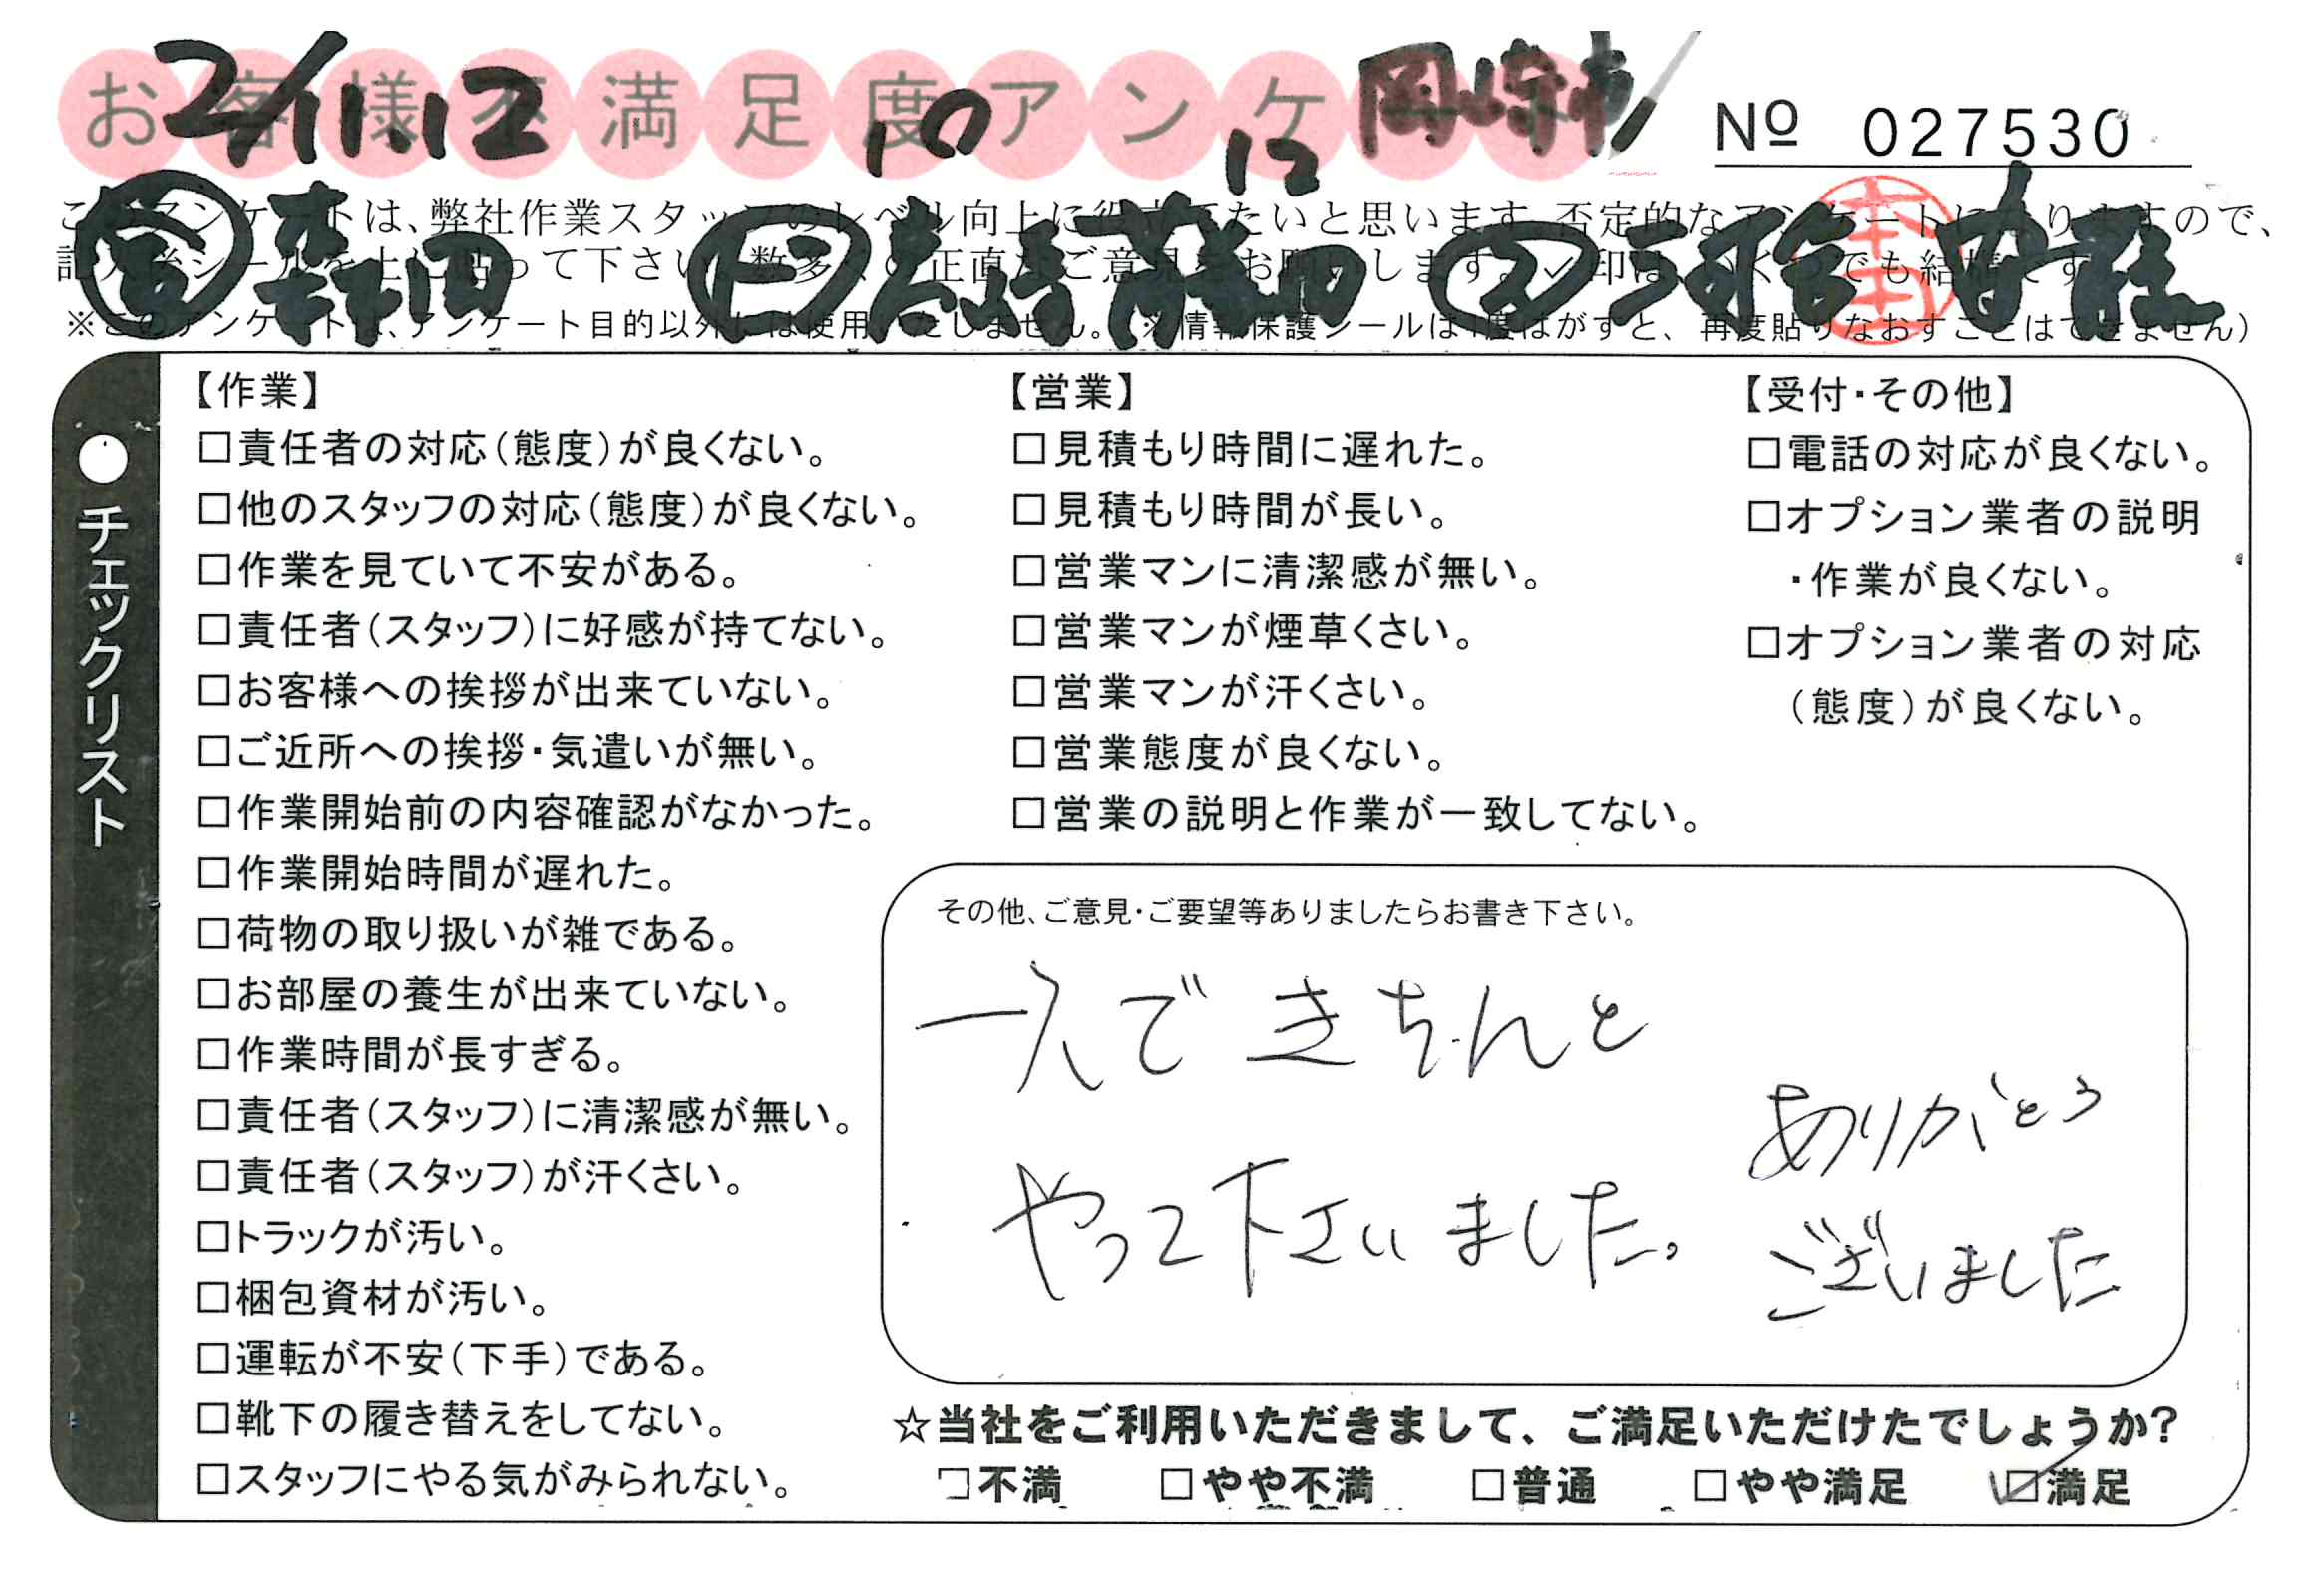 お客様不満足度アンケート
2/11.12
10
12
岡崎市
Nº 027530
このアンケートは、弊社作業スタッフのレベル向上に役立てたいと思います。否定的なアンケートになりますので、
記入後シールを上に貼って下さい。数多くの正直なご意見をお願いします。✓印はいくつでも結構です。
※このアンケートは、アンケート目的以外には使用いたしません。(※情報保護シールは1度はがすと、再度貼りなおすことはできません)
営 森田
本田
●チェックリスト
【作業】
□責任者の対応(態度)が良くない。
□他のスタッフの対応(態度)が良くない。
□作業を見ていて不安がある。
□責任者(スタッフ)に好感が持てない。
□お客様への挨拶が出来ていない。
□ご近所への挨拶・気遣いが無い。
□作業開始前の内容確認がなかった。
□作業開始時間が遅れた。
□荷物の取り扱いが雑である。
□お部屋の養生が出来ていない。
□作業時間が長すぎる。
□責任者(スタッフ)に清潔感が無い。
□責任者(スタッフ)が汗くさい。
□トラックが汚い。
□梱包資材が汚い。
□運転が不安(下手)である。
□靴下の履き替えをしてない。
□スタッフにやる気がみられない。
【営業】
□見積もり時間に遅れた。
□見積もり時間が長い。
□営業マンに清潔感が無い。
□営業マンが煙草くさい。
□営業マンが汗くさい。
□営業態度が良くない。
□営業の説明と作業が一致してない。
【受付・その他】
□電話の対応が良くない。
□オプション業者の説明
・作業が良くない。
□オプション業者の対応
(態度)が良くない。
その他、ご意見・ご要望等ありましたらお書き下さい。
一人で きちんと
やって下さいました。
ありがとう
ございました
☆当社をご利用いただきまして、ご満足いただけたでしょうか?
□不満 □やや不満 □普通 □やや満足 ☑満足